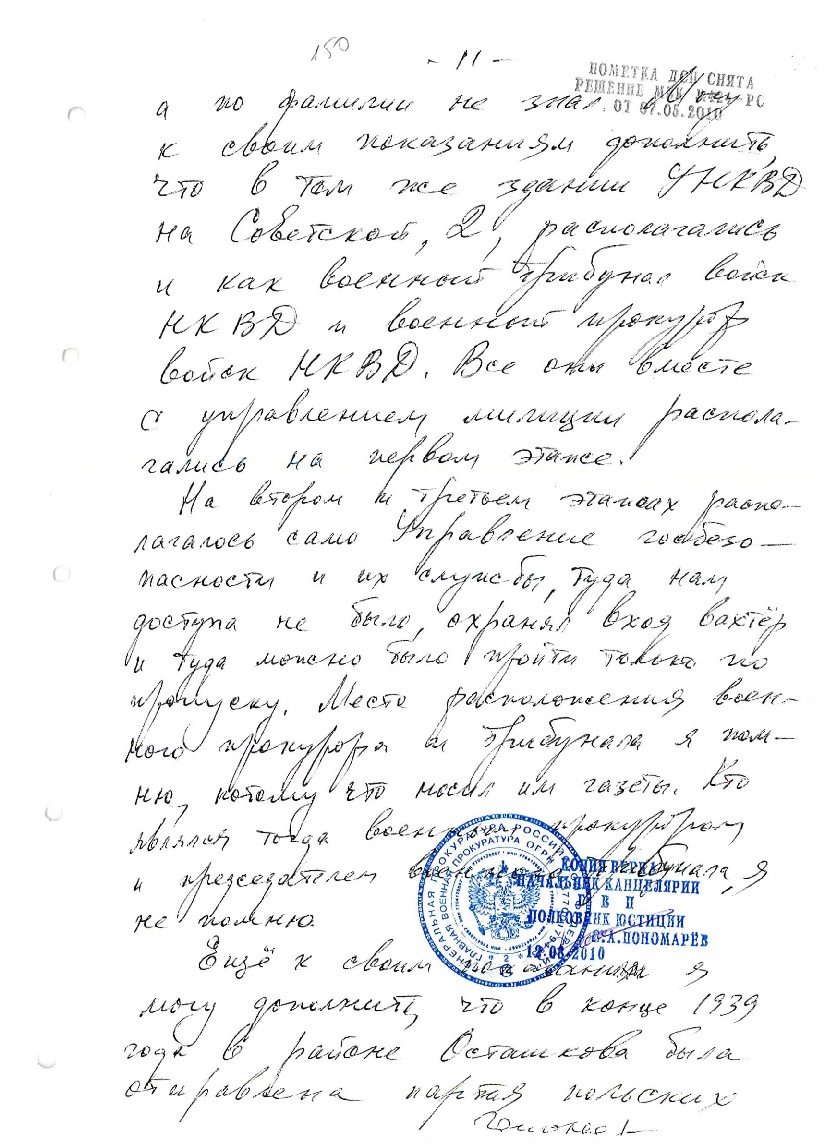 150
- 11 -
ПОМЕТКА ДСП СНЯТА
РЕШЕНИЕ МВК РС
ОТ 07.05.2010
а по фамилии не знал. Могу
к своим показаниям дополнить,
что в том же здании УНКВД
на Советской, 2, располагались
и как военный трибунал войск
НКВД и военный прокурор
войск НКВД. Все они вместе
с управлением милиции распола-
гались на первом этаже.
На втором и третьем этажах распо-
лагалось само Управление госбезо-
пасности и их службы, туда нам
доступа не было, охранял вход вахтёр
и туда можно было пройти только по
пропуску. Место расположения воен-
ного прокурора и трибунала я пом-
ню, потому что носил им газеты. Кто
являлся тогда военным прокурором
и председателем военного трибунала, я
не помню.
ГЕНЕРАЛЬНАЯ ПРОКУРАТУРА РОССИЙСКОЙ
ГЛАВНАЯ ВОЕННАЯ ПРОКУРАТУРА ОГРН
КОПИЯ ВЕРНА
НАЧАЛЬНИК КАНЦЕЛЯРИИ
Г В П
ПОЛКОВНИК ЮСТИЦИИ
В.А.ПОНОМАРЁВ
12.08.2010
Ещё к своим показаниям я
могу дополнить, что в конце 1939
года в районе Осташкова была
отправлена партия польских